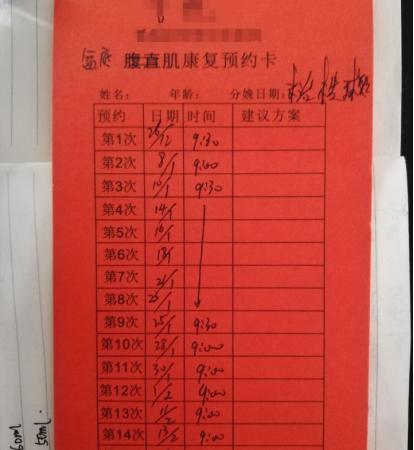 盆底 腹直肌康复预约卡
姓名: 年龄: 分娩日期:
预约 日期 时间 建议方案
第1次 26/12 9:30
第2次 8/1 9:00
第3次 10/1 9:30
第4次 14/1
第5次 16/1
第6次 18/1
第7次 21/1
第8次 23/1
第9次 25/1 9:30
第10次 28/1 9:00
第11次 30/1 9:00
第12次 1/2 9:00
第13次 11/2 9:00
第14次 13/2 9:00
60ml
50ml.